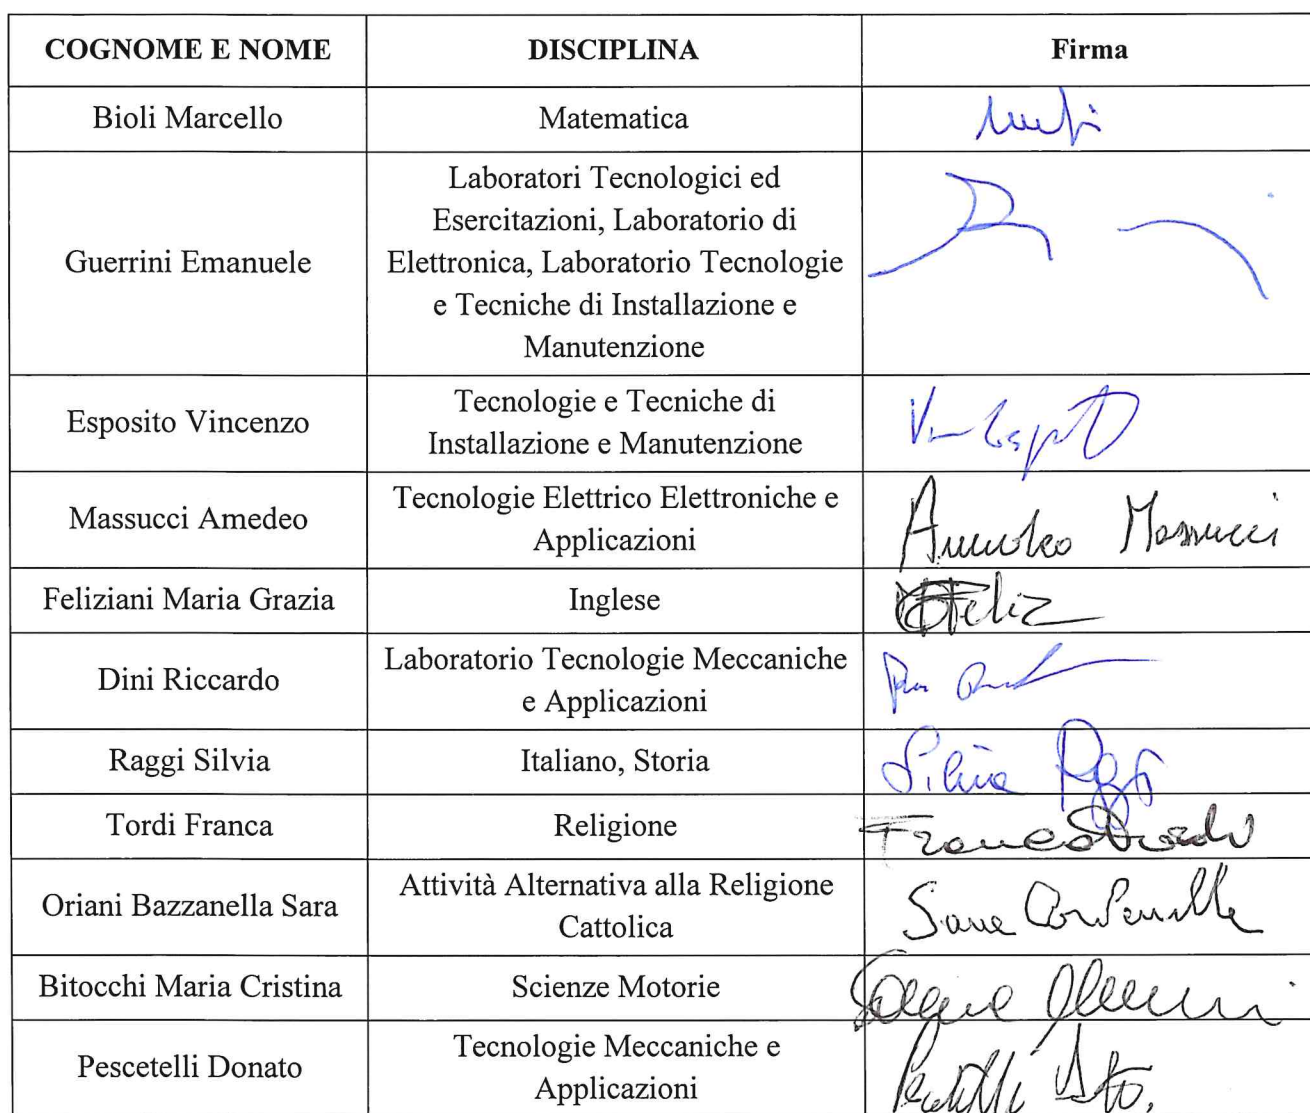 COGNOME E NOME DISCIPLINA Firma
Bioli Marcello Matematica
Guerrini Emanuele
Laboratori Tecnologici ed
Esercitazioni, Laboratorio di
Elettronica, Laboratorio Tecnologie
e Tecniche di Installazione e
Manutenzione
Esposito Vincenzo
Tecnologie e Tecniche di
Installazione e Manutenzione
Massucci Amedeo
Tecnologie Elettrico Elettroniche e
Applicazioni
Amedeo Massucci
Feliziani Maria Grazia Inglese
Dini Riccardo
Laboratorio Tecnologie Meccaniche
e Applicazioni
Raggi Silvia Italiano, Storia Silvia Raggi
Tordi Franca Religione Franca Tordi
Oriani Bazzanella Sara
Attività Alternativa alla Religione
Cattolica
Bitocchi Maria Cristina Scienze Motorie
Pescetelli Donato
Tecnologie Meccaniche e
Applicazioni